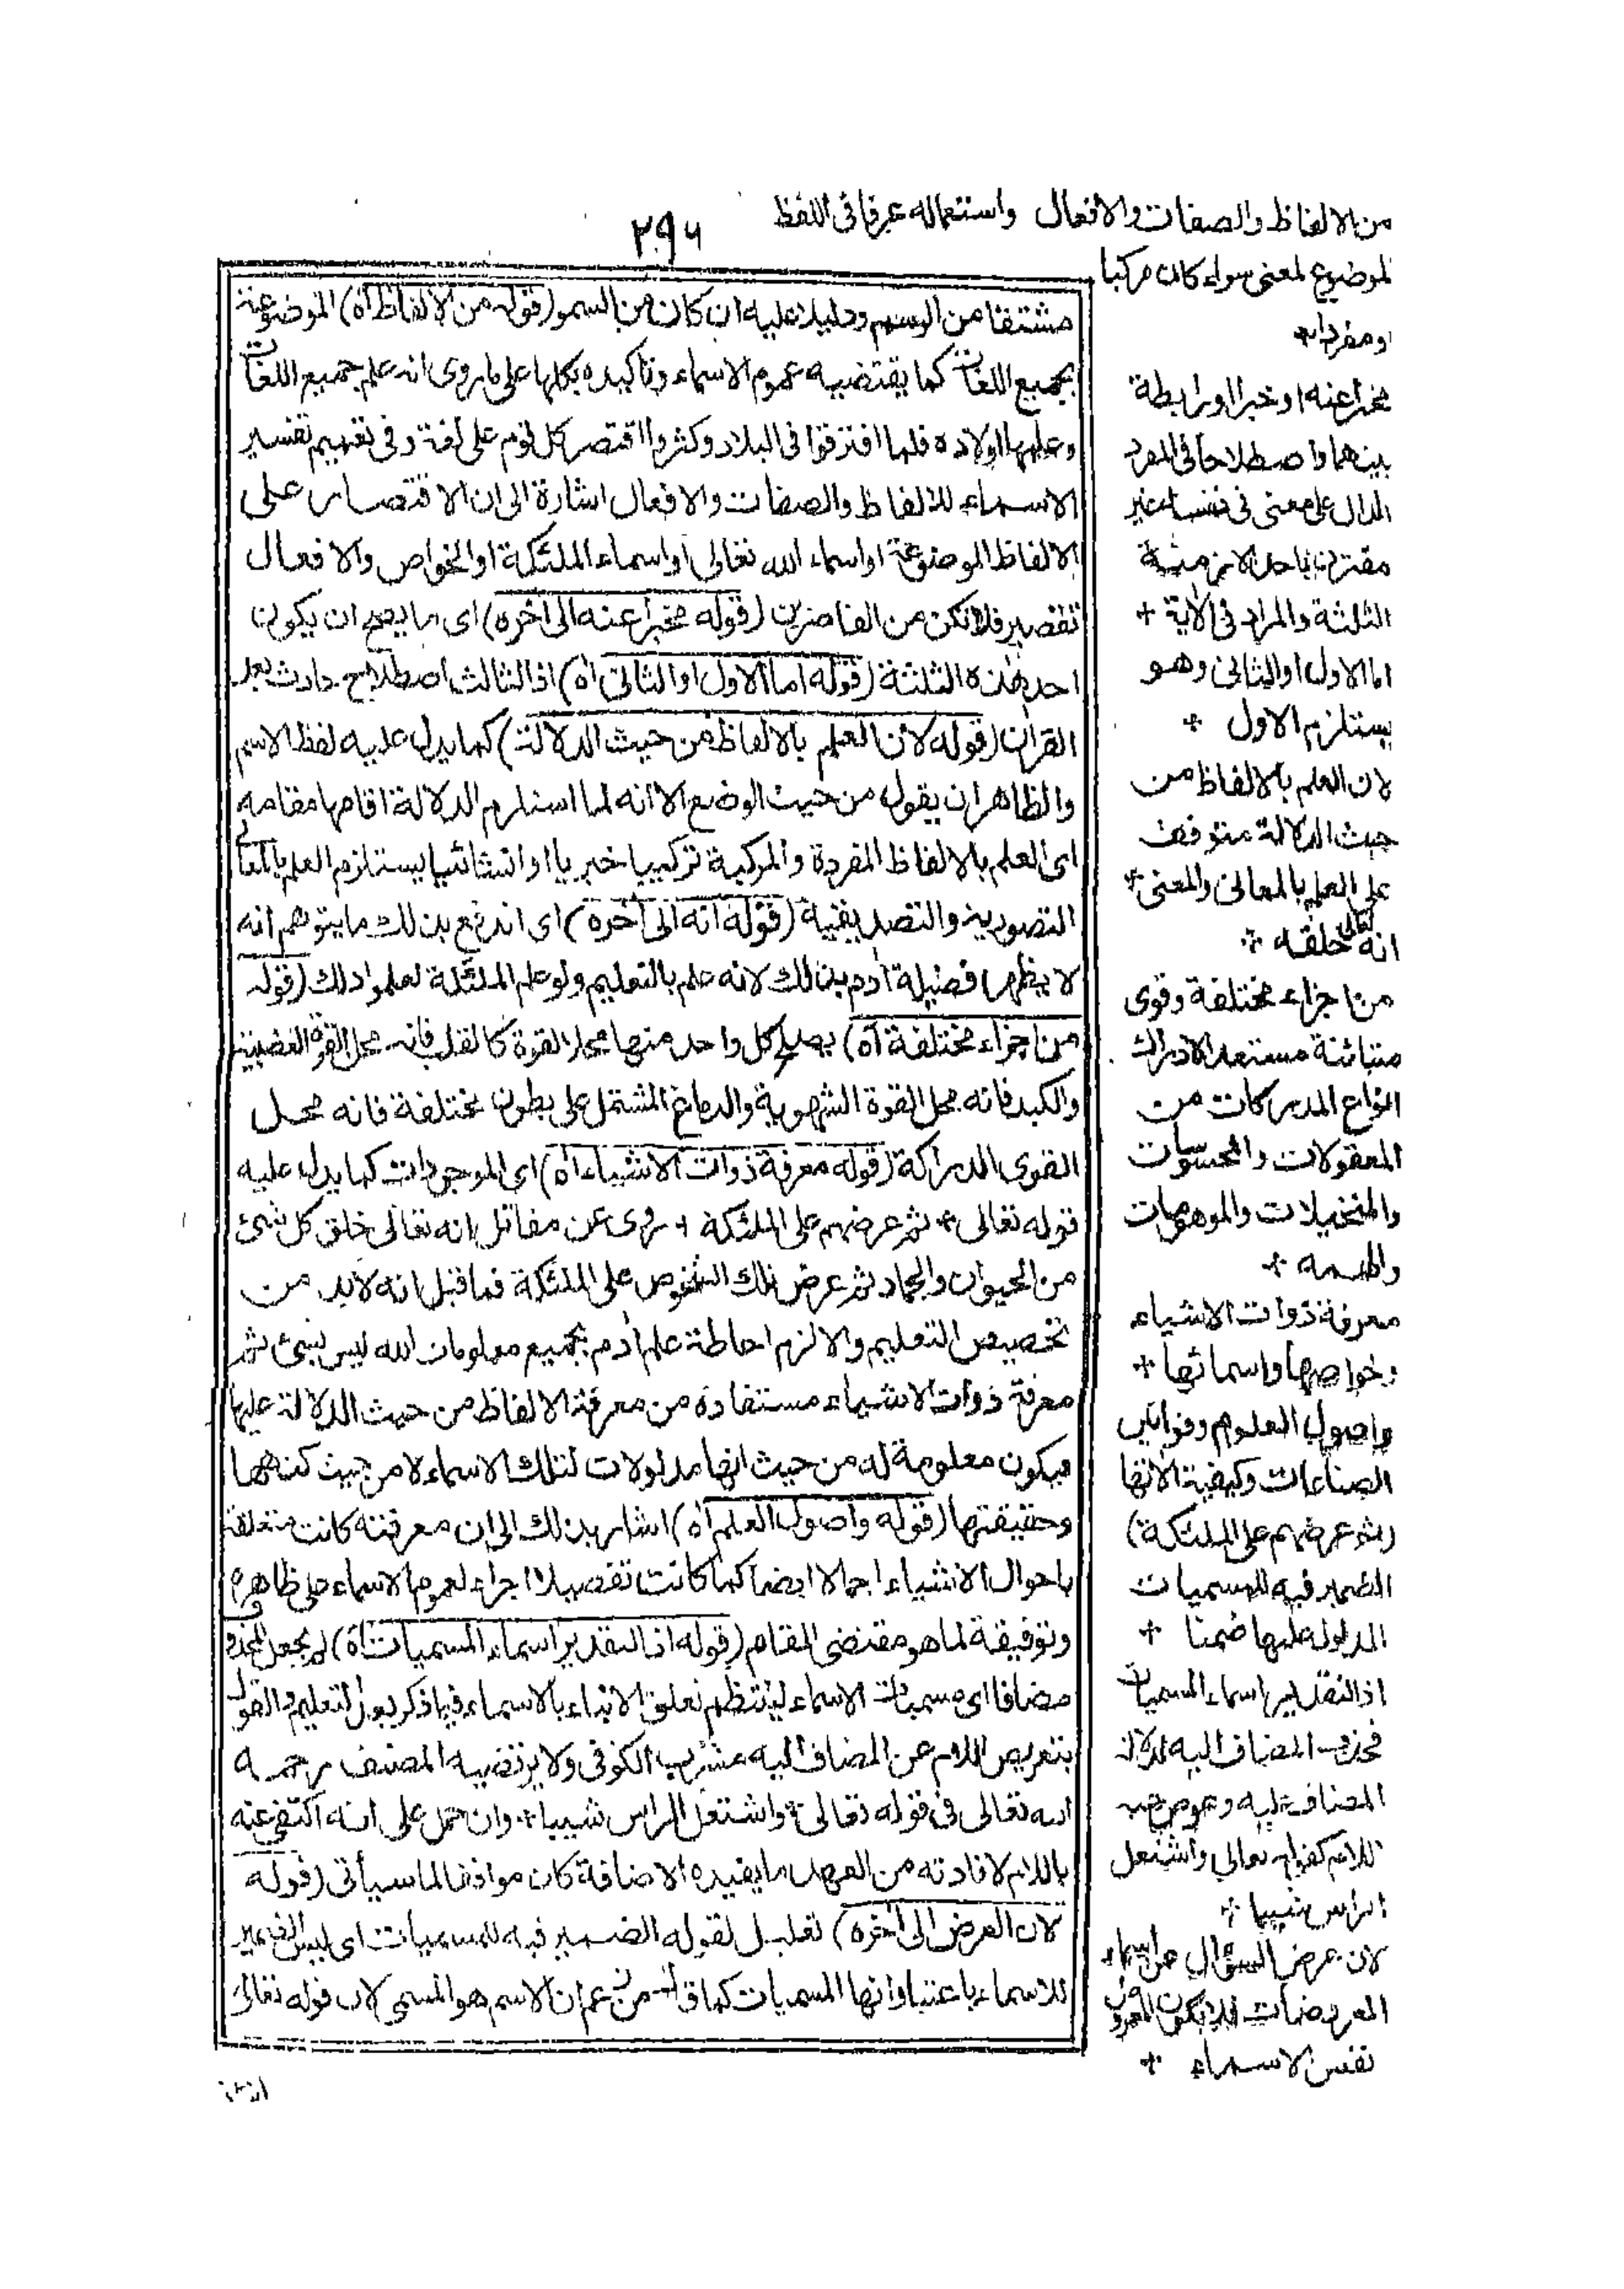 ٢٩٦
من الالفاظ والصفات والافعال واستعماله عرفا فى اللفظ
الموضوع لمعنى سواء كان مركبا
او مفردا +
مخبرا عنه او خبرا او رابطة
بينهما واصطلاحا فى المفرد
الدال على معنى فى نفسه غير
مقترن باحد الازمنة
الثلثة والمراد فى الآية +
اما الاول او الثانى وهو
يستلزم الاول +
لان العلم بالالفاظ من
حيث الدلالة متوقف
على العلم بالمعانى والمعنى +
انه تعالى خلقه +
من اجزاء مختلفة وقوى
متبائنة مستعد الادراك
انواع المدركات من
المعقولات والمحسوسات
والمتخيلات والموهومات
والهمه +
معرفة ذوات الاشياء
وخواصها واسمائها +
واصول العلوم وقوانين
الصناعات وكيفية الاتها
(ثم عرضهم على الملئكة)
الضمير فيه للمسميات
المدلول عليها ضمنا +
اذ التقدير اسماء المسميات
فحذف المضاف اليه لدلالة
المضاف عليه وعوض عنه
اللام كقوله تعالى واشتعل
الراس شيبا +
لان عرض السؤال عن اسماء
المعروضات فلا يكون المعروض
نفس الاسماء +
مشتقا من الوسم ودليلا عليه ان كان من السمو (قوله من الالفاظ اه) الموضوعة
بجميع اللغات كما يقتضيه عموم الاسماء وتاكيده بكلها على ما روى انه علم جميع اللغات
وعلمها اولاده فلما افترقوا فى البلاد وكثروا اقتصر كل قوم على لغة وفى تعميم تفسير
الاسماء للالفاظ والصفات والافعال اشارة الى ان الاقتصار على
الالفاظ الموضوعة او اسماء الله تعالى او اسماء الملئكة او الخواص والافعال
تقصير فلا تكن من القاصرين (قوله مخبرا عنه الى اخره) اى ما يصح ان يكون
احد هذه الثلثة (قوله اما الاول او الثانى اه) اذ الثالث اصطلاح حادث بعد
القرآن (قوله لان العلم بالالفاظ من حيث الدلالة) كما يدل عليه لفظ الاسم
والظاهر ان يقول من حيث الوضع الا انه لما استلزم الدلالة اقامها مقامه
اى العلم بالالفاظ المفردة والمركبة تركيبا خبريا او انشائيا يستلزم العلم بالمعانى
التصورية والتصديقية (قوله انه الى اخره) اى اندفع بذلك ما يتوهم انه
لا يظهر فضيلة آدم بذلك لانه علم بالتعليم ولو علم الملئكة لعلموا ذلك (قوله
من اجزاء مختلفة اه) يصلح كل واحد منها محلا لقوة كالقلب فانه محل القوة الغضبية
والكبد فانه محل القوة الشهوية والدماغ المشتمل على بطون مختلفة فانه محل
القوى الدراكة (قوله معرفة ذوات الاشياء اه) اى الموجودات كما يدل عليه
قوله تعالى + ثم عرضهم على الملئكة + روى عن مقاتل انه تعالى خلق كل شئ
من الحيوان والجماد ثم عرض تلك الشخوص على الملئكة فما قيل انه لابد من
تخصيص التعليم والا لزم احاطة علم آدم بجميع معلومات الله ليس بشئ ثم
معرفة ذوات الاشياء مستفادة من معرفة الالفاظ من حيث الدلالة عليها
فيكون معلومة له من حيث انها مدلولات لتلك الاسماء لا من حيث كنهها
وحقيقتها (قوله واصول العلم اه) اشار بذلك الى ان معرفته كانت متعلقة
باحوال الاشياء اجمالا ايضا كما كانت تفصيلا اجراء لعموم الاسماء على ظاهره
وتوفيقة لما هو مقتضى المقام (قوله اذ التقدير اسماء المسميات اه) لم يجعل المحذوف
مضافا اى مسميات الاسماء لينتظم تعلق الانباء بالاسماء فيما ذكر بعد التعليم والقول
بتعويض اللام عن المضاف اليه مشرب الكوفى ولا يرتضيه المصنف رحمه
الله تعالى فى قوله تعالى + واشتعل الراس شيبا + وان حمل على انه اكتفى عنه
باللام لافادته من العهد ما يفيده الاضافة كان موافقا لما سيأتى (قوله
لان العرض الى اخره) تعليل لقوله الضمير فيه للمسميات اى ليس الضمير
للاسماء باعتبار انها المسميات كما قال من زعم ان الاسم هو المسمى لان قوله تعالى